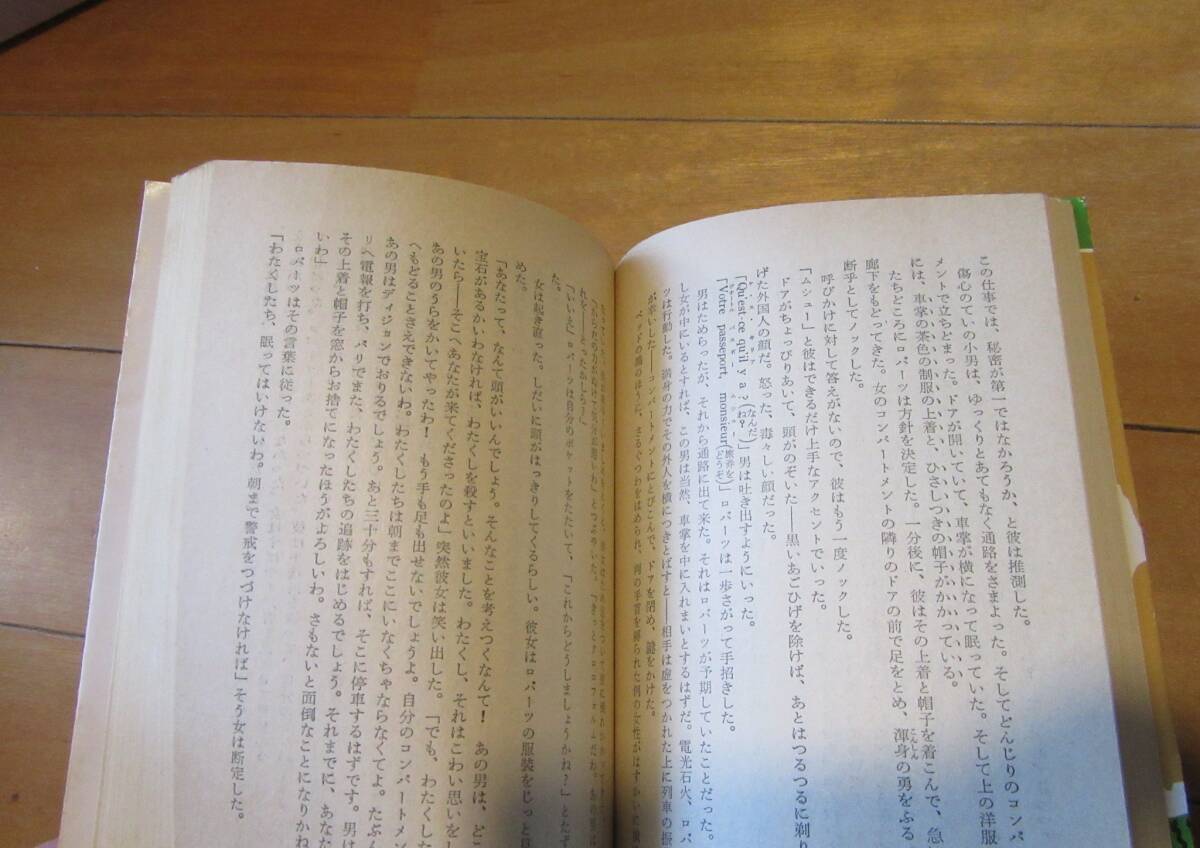 この仕事では、秘密が第一ではなかろうか、と彼は推測した。
傷心のていの小男は、ゆっくりとあてもなく通路をさまよった。そしてどんじりのコンパ
メントで立ちどまった。ドアが開いていて、車掌が横になって眠っていた。そして上の洋服
には、車掌の茶色の制服の上着と、ひさしつきの帽子がかかっている。
たちどころにロバーツは方針を決定した。一分後に、彼はその上着と帽子を着こんで、急
廊下をもどってきた。女のコンパートメントの隣りのドアの前で足をとめ、渾身の勇をふる
こんしん
断乎としてノックした。
呼びかけに対して答えがないので、彼はもう一度ノックした。
「ムシュー」と彼はできるだけ上手なアクセントでいった。
ドアがちょっぴりあいて、頭がのぞいた――黒いあごひげを除けば、あとはつるつるに剃り
げた外国人の顔だ。怒った、毒々しい顔だった。
「Qu'est-ce qu'il y a?(なんだね?)」男は吐き出すようにいった。
「Votre passeport, monsieur(旅券をどうぞ)」ロバーツは一歩さがって手招きした。
男はためらったが、それから通路に出て来た。それはロバーツが予期していたことだった。
し女が中にいるとすれば、この男は当然、車掌を中に入れまいとするはずだ。電光石火、ロバ
ツは行動した。満身の力でその外人を横につきとばすと――相手は虚をつかれた上に列車の振
が幸いした――コンパートメントにとびこんで、ドアを閉め、鍵をかけた。
ベッドの隅のほうに、さるぐつわをはめられ、
れを――とったかしら?」
「いいえ」ロバーツは自分のポケットをたたいて、「これからどうしましょうかね?」とたず
た。
女は起き直った。しだいに頭がはっきりしてくるらしい。彼女はロバーツの服装をじっと
めた。
「あなたって、なんて頭がいいんでしょう。そんなことを考えつくなんて! あの男は、どこ
宝石があるかいわなければ、わたくしを殺すといいました。わたくし、それはこわい思いをし
いたら――そこへあなたが来てくださったのよ」突然彼女は笑い出した。「でも、わたくした
あの男のうらをかいてやったわ! もう手も足も出せないでしょうよ。自分のコンパートメン
へもどることさえできないわ。わたくしたちは朝までここにいなくちゃならなくてよ。たぶん
あの男はディジョンでおりるでしょう。あと三十分もすれば、そこに停車するはずです。男は
リへ電報を打ち、パリでまた、わたくしたちの追跡をはじめるでしょう。それまでに、あなた
その上着と帽子を窓からお捨てになったほうがよろしいわ。さもないと面倒なことになりかね
いわ」
ロバーツはその言葉に従った。
「わたくしたち、眠ってはいけないわ。朝まで警戒をつづけなければ」そう女は断定した。